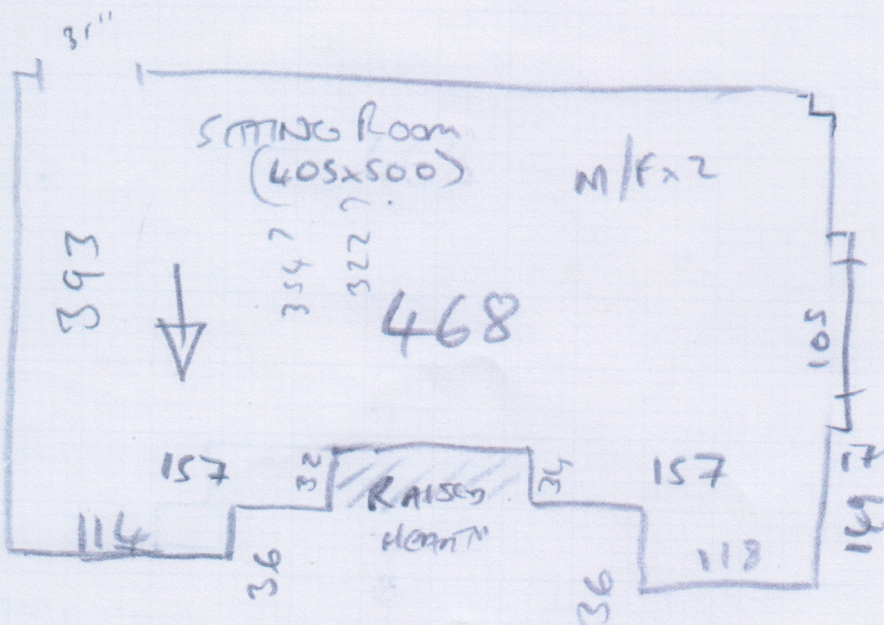 31"
SITTING Room
(405x500)
M/F x 2
393
354 ?
322 ?
468
105
157
32
RAISED
HEARTH
34
157
17
149
114
36
36
118